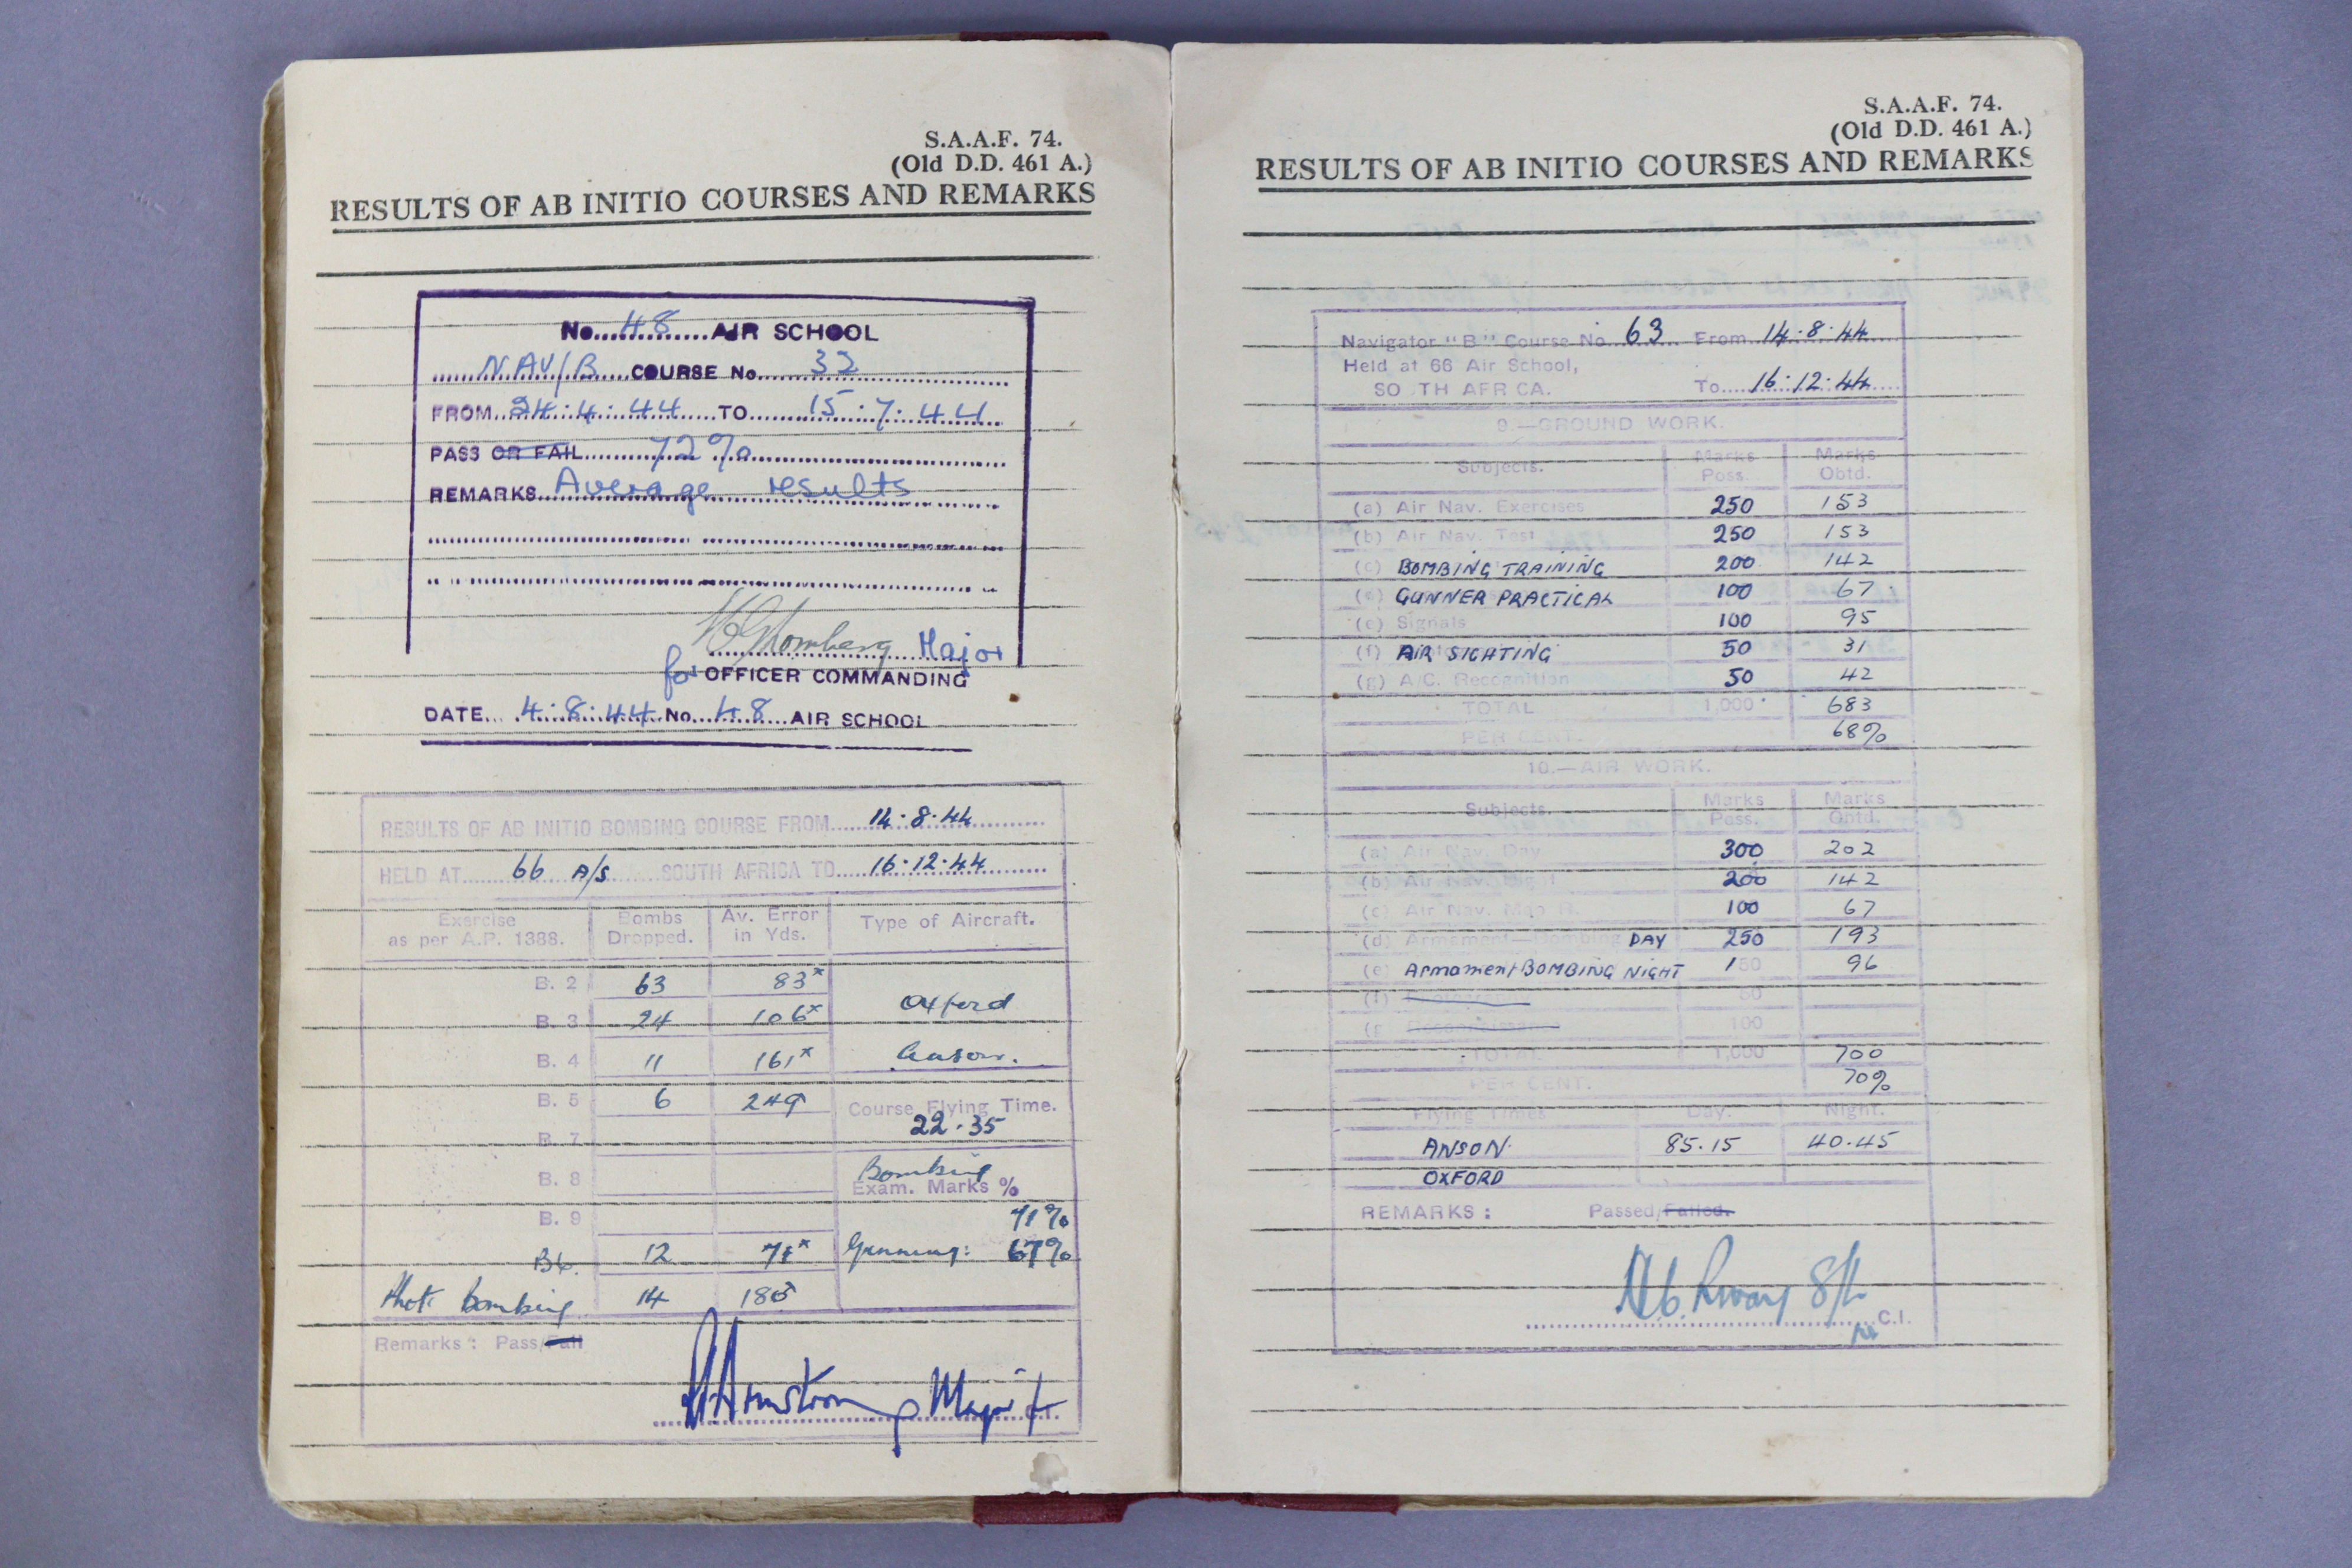 S.A.A.F. 74.
(Old D.D. 461 A.)
RESULTS OF AB INITIO COURSES AND REMARKS
No. 48 AIR SCHOOL
NAV/B COURSE No. 32
FROM 24.4.44 TO 15.7.44
PASS OR FAIL 72%
REMARKS Average results
Major
for OFFICER COMMANDING
DATE 4.8.44 No. 48 AIR SCHOOL
RESULTS OF AB INITIO BOMBING COURSE FROM 14.8.44
HELD AT 66 A/S SOUTH AFRICA TO 16.12.44
Exercise as per A.P. 1388. Bombs Dropped. Av. Error in Yds. Type of Aircraft.
B. 2 63 83x
Oxford
B. 3 24 106x
B. 4 11 161x Anson.
B. 5 6 249 Course Flying Time.
22.35
B. 7
Bombing
B. 8 Exam. Marks %
B. 9 71%
B6. 12 75x Gunnery: 67%
Phot. bombing 14 185
Remarks: Pass/Fail
Armstrong Major
C.I.
S.A.A.F. 74.
(Old D.D. 461 A.)
RESULTS OF AB INITIO COURSES AND REMARKS
Navigator "B" Course No. 63 From 14.8.44
Held at 66 Air School,
SO TH AFR CA. To 16.12.44
9.—GROUND WORK.
Subjects. Marks Poss. Marks Obtd.
(a) Air Nav. Exercises 250 153
(b) Air Nav. Test 250 153
(c) BOMBING TRAINING 200 142
(e) GUNNER PRACTICAL 100 67
(e) Signals 100 95
(f) AIR SIGHTING 50 31
(g) A/C. Recognition 50 42
TOTAL 1,000 683
PER CENT. 68%
10.—AIR WORK.
Subjects. Marks Poss. Marks Obtd.
(a) Air Nav. Day 300 202
(b) Air Nav. Night 200 142
(c) Air Nav. Map R. 100 67
(d) Armament—Bombing DAY 250 193
(e) Armament BOMBING NIGHT 150 96
(f) 50
(g 100
TOTAL 1,000 700
PER CENT. 70%
Flying Times Day. Night.
ANSON 85.15 40.45
OXFORD
REMARKS: Passed/Failed.
C.I.